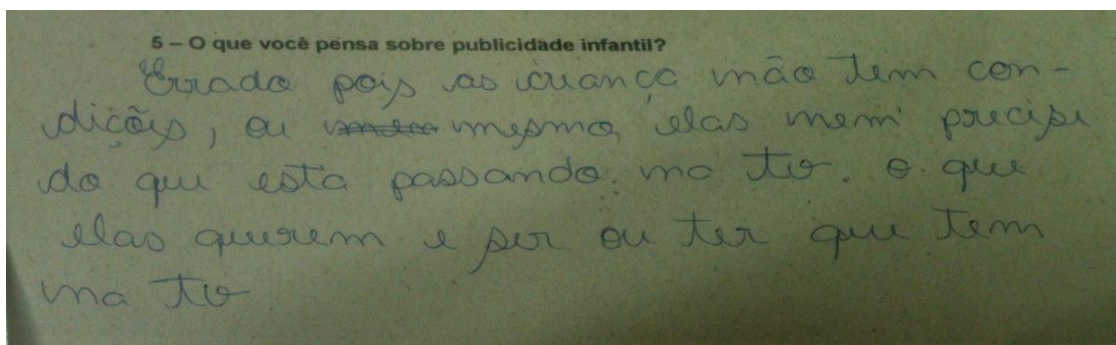 5 – O que você pensa sobre publicidade infantil?
Errado pois as criança não tem con-
dições, ou mesmo elas nem precise
do que esta passando. na tv. o que
elas querem e ser ou ter que tem
na tv